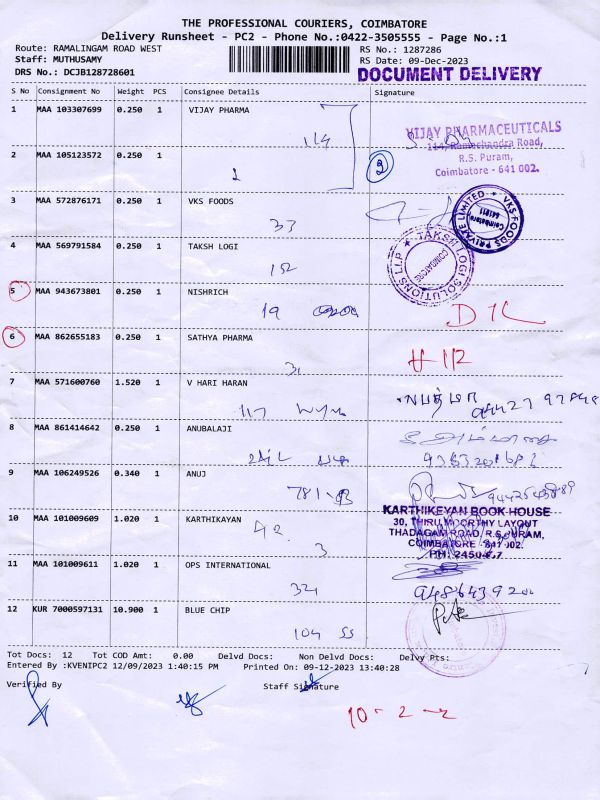 THE PROFESSIONAL COURIERS, COIMBATORE
Delivery Runsheet - PC2 - Phone No.:0422-3505555 - Page No.:1
Route: RAMALINGAM ROAD WEST
RS No.: 1287286
Staff: MUTHUSAMY
RS Date: 09-Dec-2023
DRS No.: DCJB128728601
DOCUMENT DELIVERY
S No Consignment No Weight PCS Consignee Details Signature
1 MAA 103307699 0.250 1 VIJAY PHARMA
114
VIJAY PHARMACEUTICALS
114, Ramachandra Road,
R.S. Puram,
Coimbatore - 641 002.
2 MAA 105123572 0.250 1
2
3 MAA 572876171 0.250 1 VKS FOODS
33
VKS FOODS PRIVATE LIMITED
Coimbatore
641011
4 MAA 569791584 0.250 1 TAKSH LOGI
152
TAKSH LOGI SOLUTIONS LLP
COIMBATORE
5 MAA 943673801 0.250 1 NISHRICH
19
D/L
6 MAA 862655183 0.250 1 SATHYA PHARMA
31
7 MAA 571600760 1.520 1 V HARI HARAN
117
8 MAA 861414642 0.250 1 ANUBALAJI
9 MAA 106249526 0.340 1 ANUJ
781
10 MAA 101009609 1.020 1 KARTHIKAYAN
42
3
KARTHIKEYAN BOOK HOUSE
30, THIRUMOORTHY LAYOUT
THADAGAM ROAD, R.S. PURAM,
COIMBATORE 641 002.
11 MAA 101009611 1.020 1 OPS INTERNATIONAL
321
12 KUR 7000597131 10.900 1 BLUE CHIP
104
Tot Docs: 12 Tot COD Amt: 0.00 Delvd Docs: Non Delvd Docs: Delvy Pts:
Entered By :KVENIPC2 12/09/2023 1:40:15 PM Printed On: 09-12-2023 13:40:28
Verified By Staff Signature
10 - 2 - 2